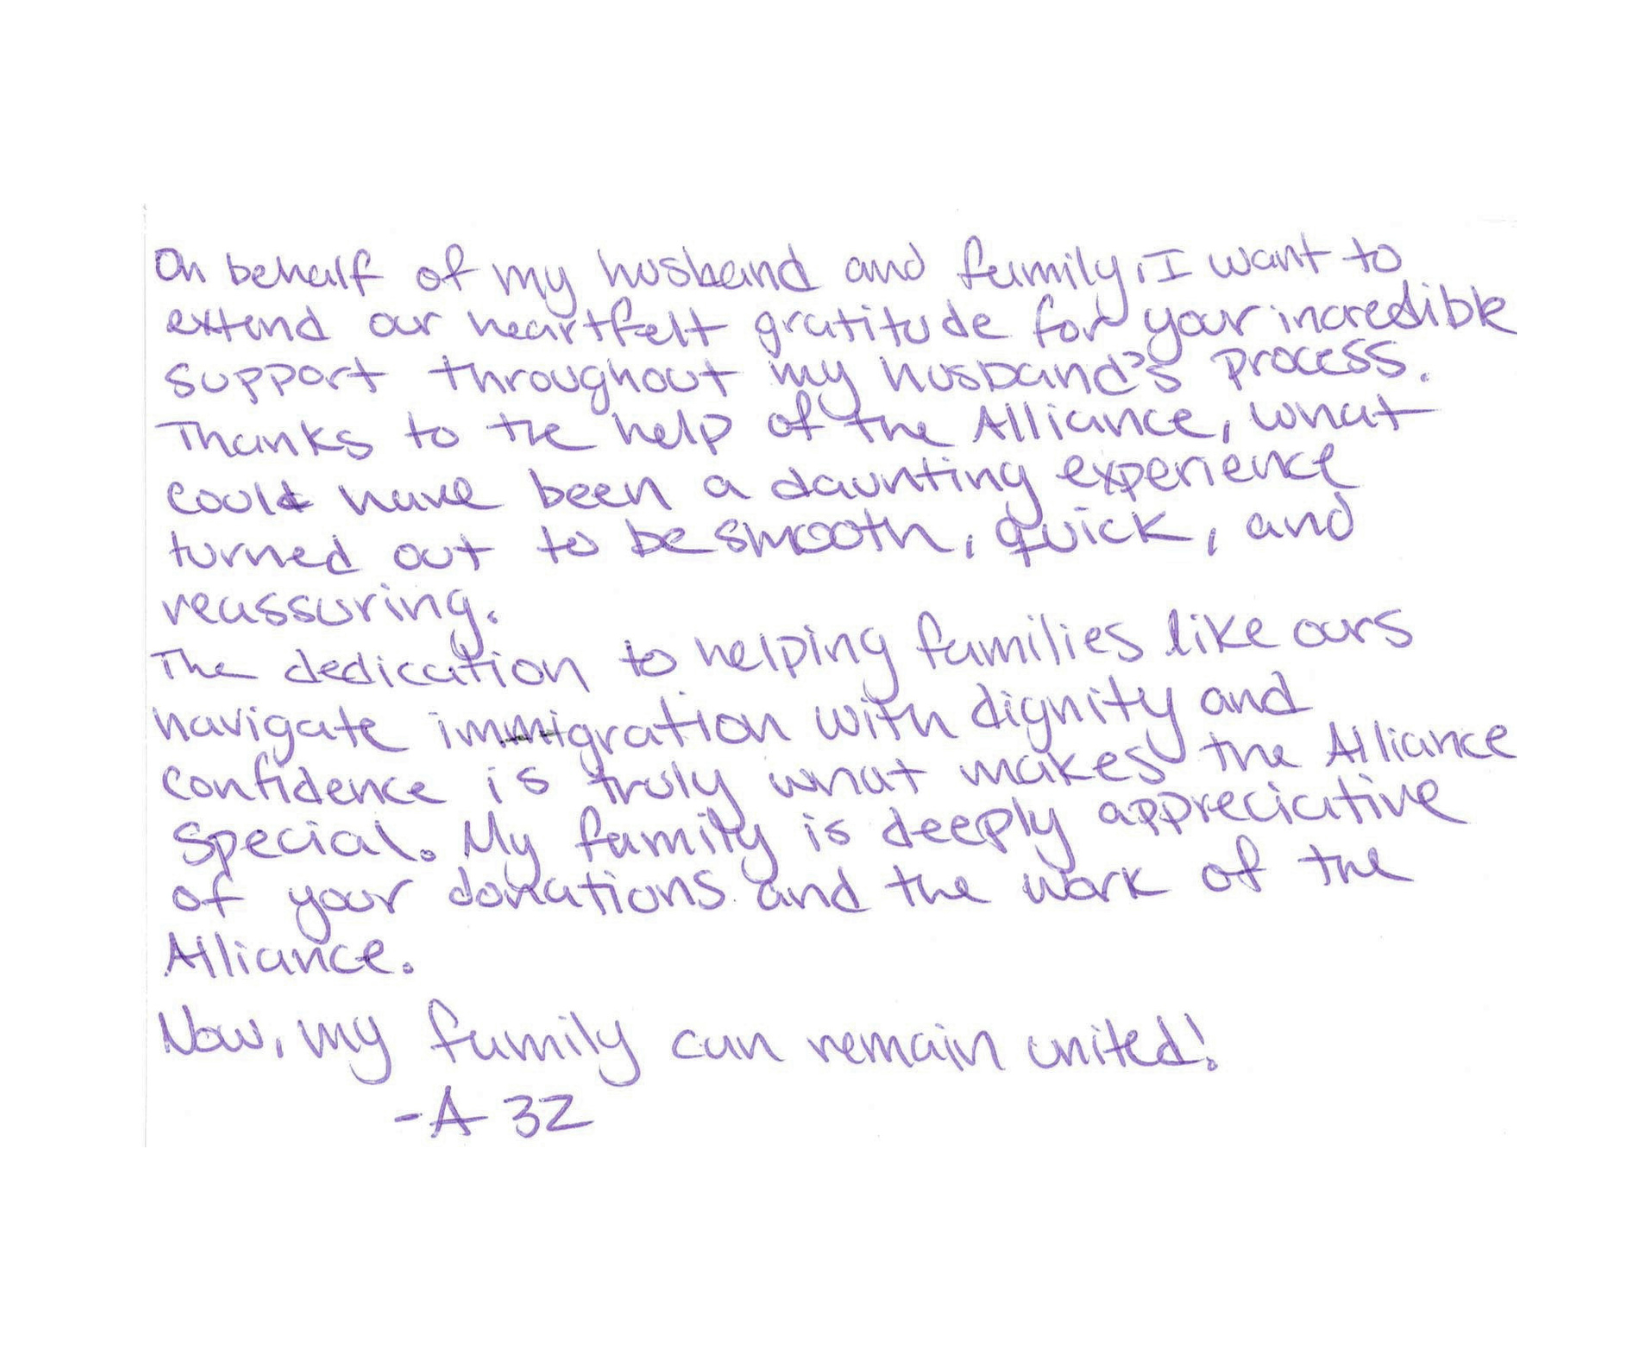 On behalf of my husband and family, I want to
extend our heartfelt gratitude for your incredible
support throughout my husband's process.
Thanks to the help of the Alliance, what
could have been a daunting experience
turned out to be smooth, quick, and
reassuring.
The dedication to helping families like ours
navigate immigration with dignity and
confidence is truly what makes the Alliance
special. My family is deeply appreciative
of your donations and the work of the
Alliance.
Now, my family can remain united!
-A 32